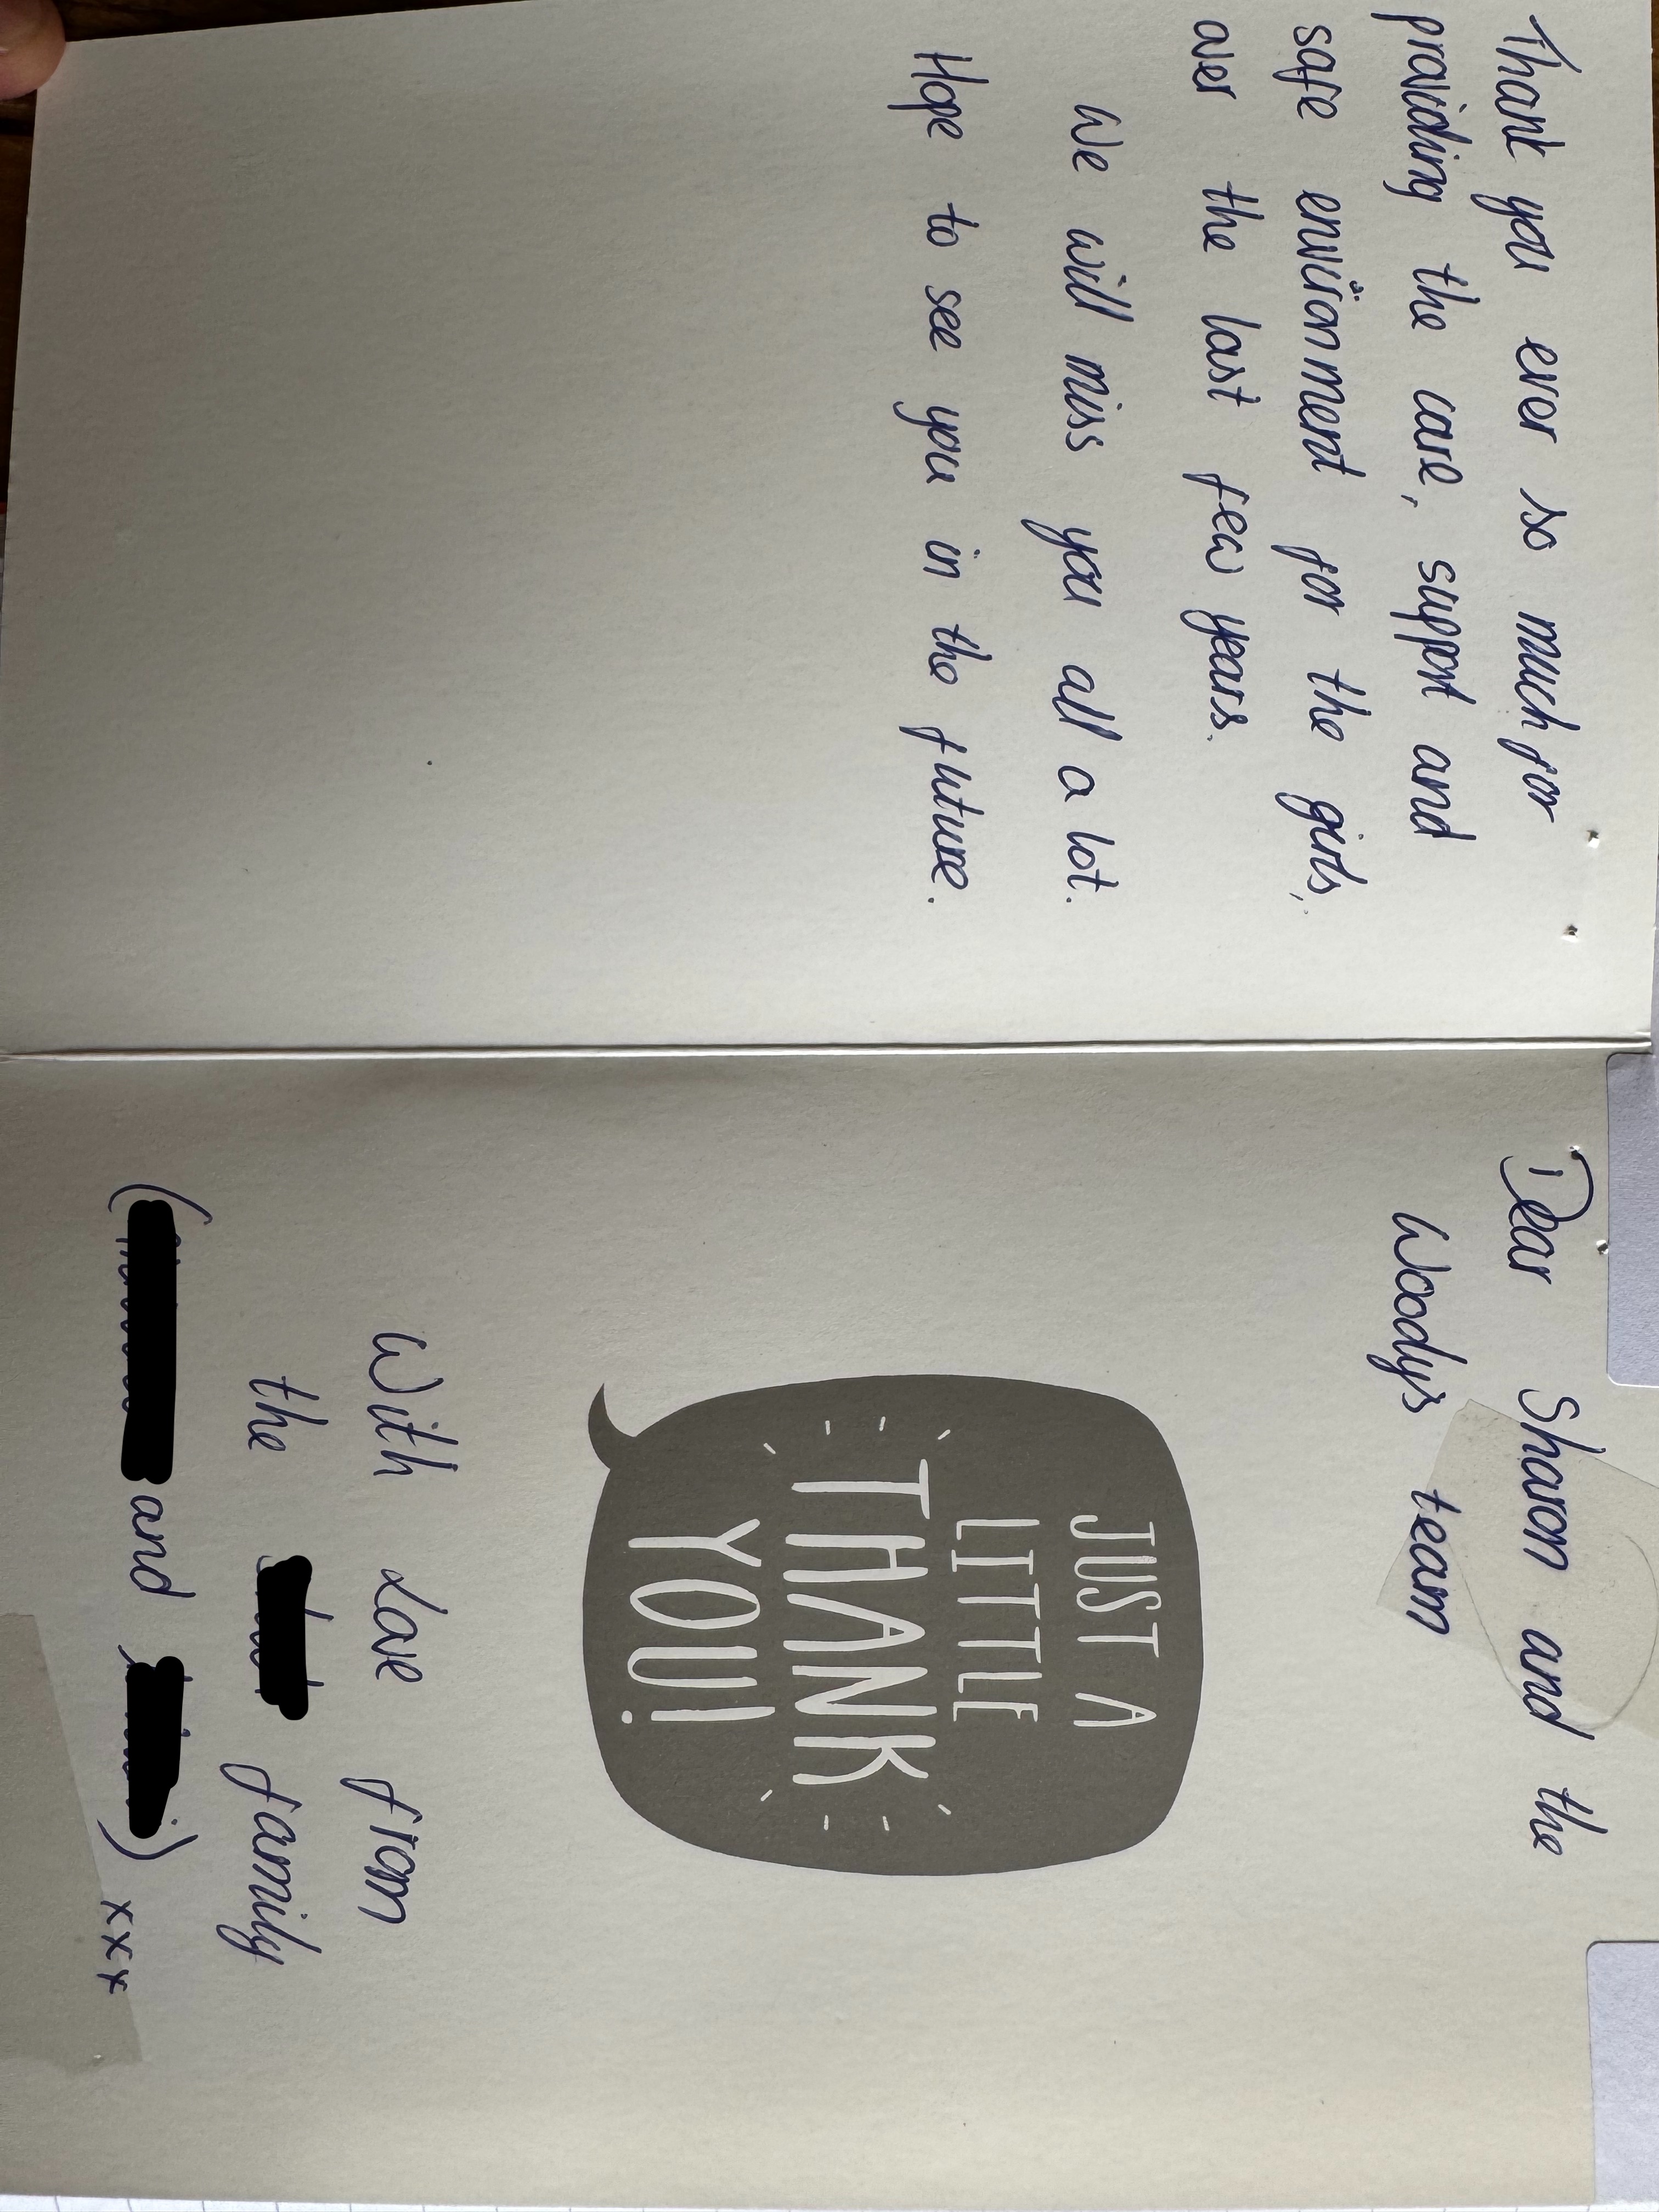 Thank you ever so much for
providing the care, support and
safe environment for the girls,
over the last few years.
We will miss you all a lot.
Hope to see you in the future.
Dear Sharon and the
Woodys team
JUST A
LITTLE
THANK
YOU!
With Love from
the family
( and ) xxx